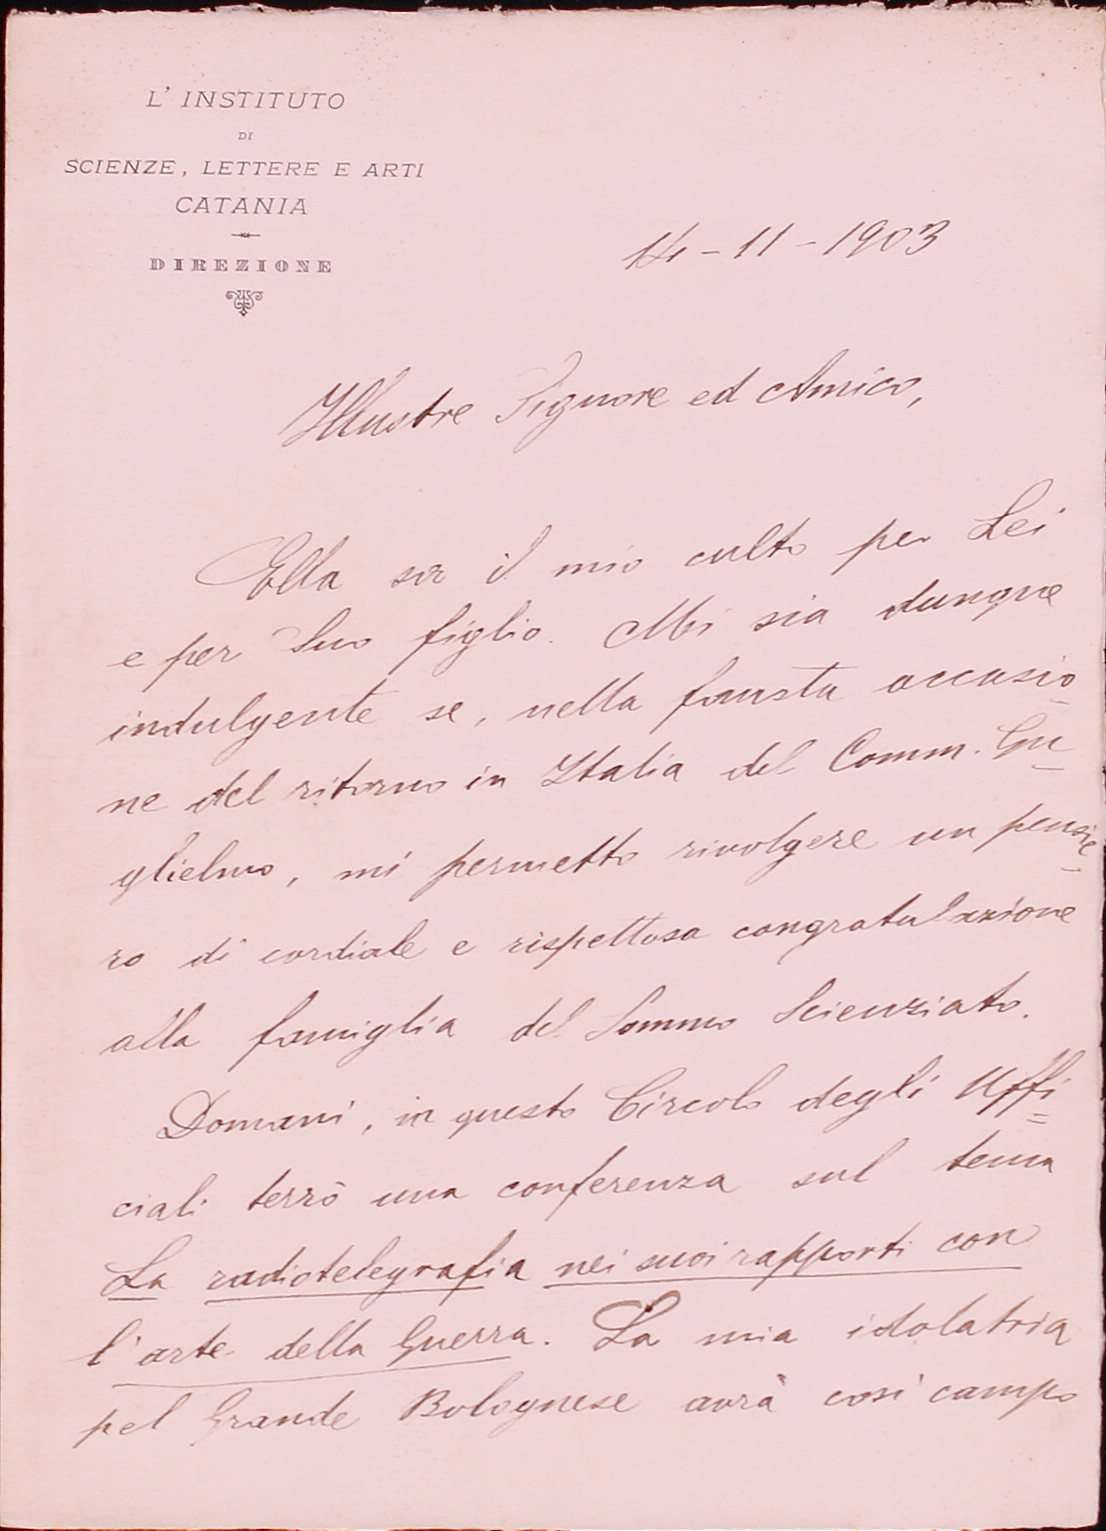 L' INSTITUTO
DI
SCIENZE, LETTERE E ARTI
CATANIA
DIREZIONE
14-11-1903
Illustre Signore ed Amico,
Ella sa il mio culto per Lei
e per Suo figlio. Mi sia dunque
indulgente se, nella fausta occasio-
ne del ritorno in Italia del Comm. Gu-
glielmo, mi permetto rivolgere un pensie-
ro di cordiale e rispettosa congratulazione
alla famiglia del Sommo Scienziato.
Domani, in questo Circolo degli Uffi=
ciali terrò una conferenza sul tema
La radiotelegrafia nei suoi rapporti con
l'arte della Guerra. La mia idolatria
pel Grande Bolognese avrà così campo